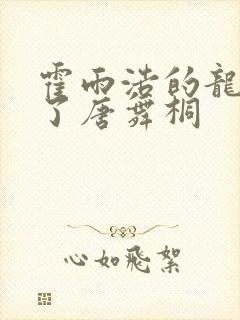 霍雨浩的龍
了唐舞桐
心如飛絮